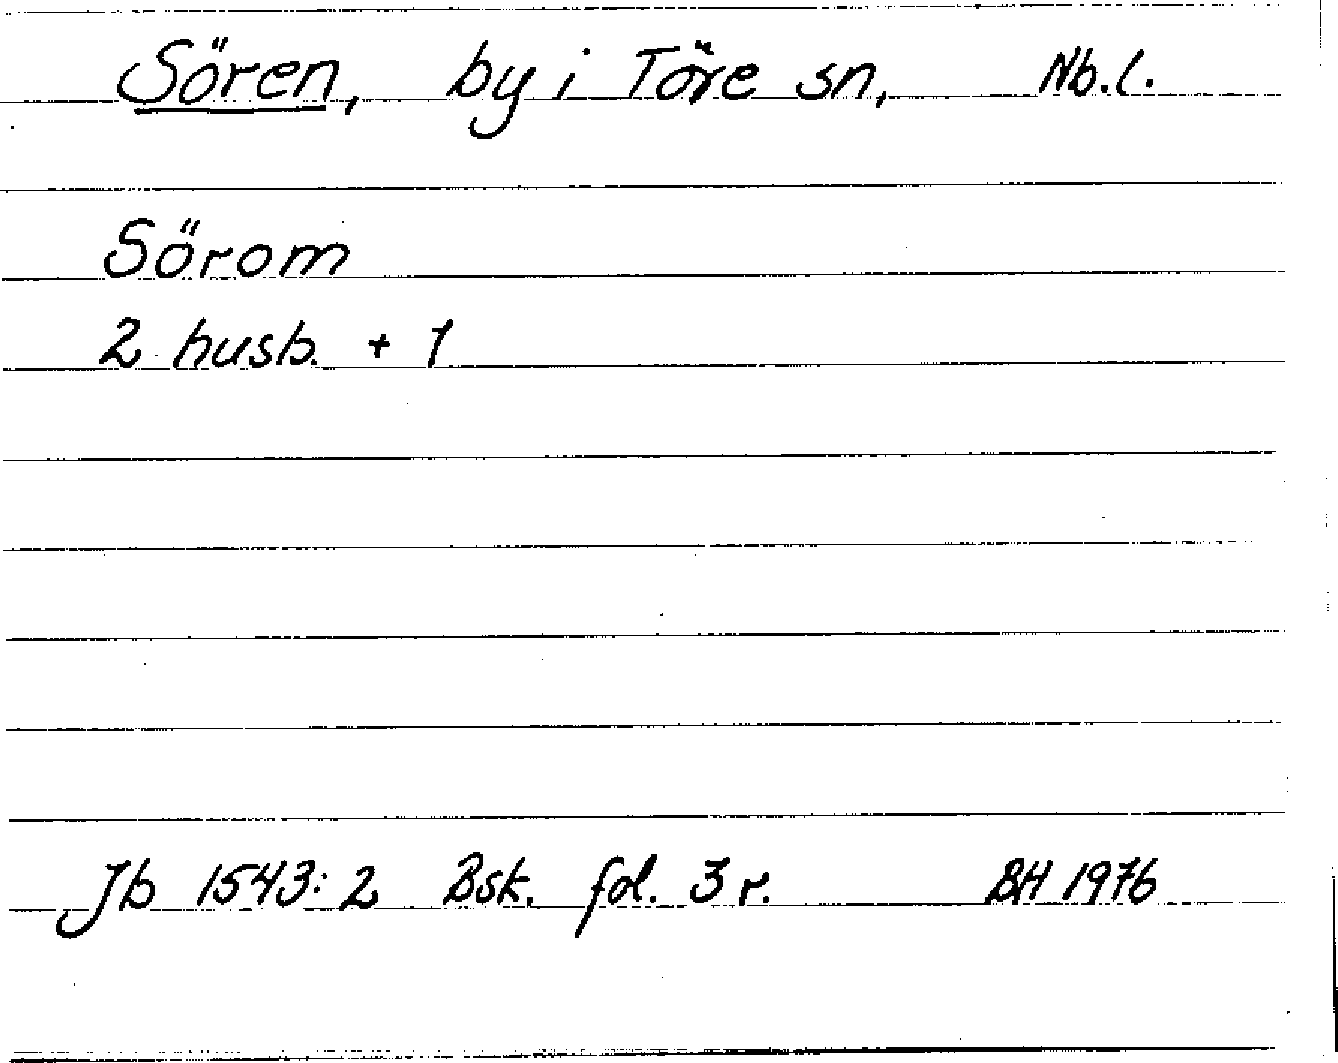 Sören, by i Töre sn, Nb.l.
Sörom
2 husb. + 1
Jb 1543:2 Bsk. fol. 3 r. BH 1976